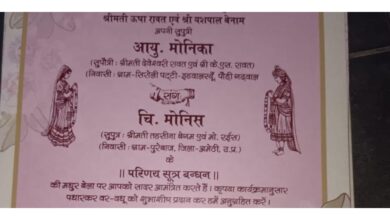 श्रीमती ऊषा रावत एवं श्री यशपाल बेनाम
अपनी सुपुत्री
आयु. मोनिका
(सुपौत्री : श्रीमती देवेश्वरी रावत एवं श्री के.एस. रावत)
(निवासी : ग्राम-सिरोली पट्टी-इडवालस्यूँ, पौड़ी गढ़वाल)
संग
चि. मोनिस
(सुपुत्र : श्रीमती तहसीना बेगम एवं मो. रईस)
(निवासी : ग्राम-पूरेबाज, जिला-अमेठी, उ.प्र.)
के
|| परिणय सूत्र बन्धन ||
की मधुर बेला पर आपको सादर आमंत्रित करते हैं। कृपया कार्यक्रमानुसार
पधारकर वर-वधू को शुभाशीष प्रदान कर हमें अनुग्रहित करें।